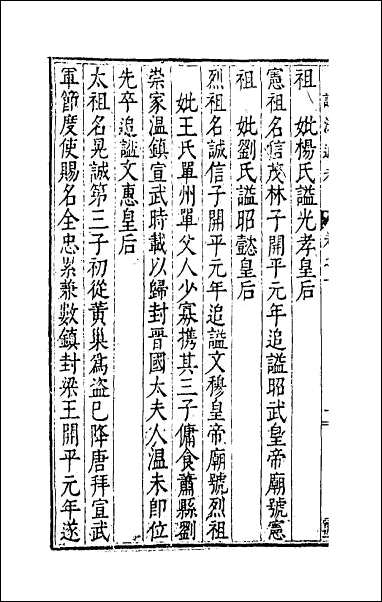 祖　妣楊氏謚光孝皇后
憲祖名信茂林子開平元年追謚昭武皇帝廟號憲
祖　妣劉氏謚昭懿皇后
烈祖名誠信子開平元年追謚文穆皇帝廟號烈祖
妣王氏單州單父人少寡携其三子傭食蕭縣劉
崇家溫鎮宣武時載以歸封晉國太夫人溫未卽位
先卒追謚文惠皇后
太祖名晃誠第三子初從黃巢為盜已降唐拜宣武
軍節度使賜名全忠累兼數鎮封梁王開平元年遂